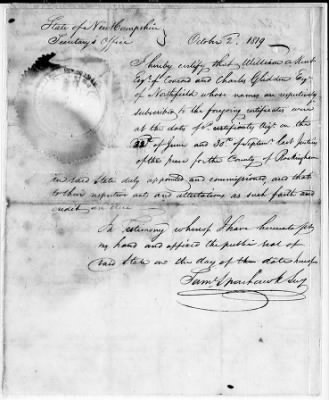 State of New Hampshire
Secretary's Office October 2, 1819
I hereby certify that William A Kent
Esqr of Concord and Charles Glidden Esqr
of Northfield whose names are respectively
subscribed to the foregoing certificates were
at the date of sd. certificates viz on the
of June and 30th of Septemr last Justices
of the peace for the County of Rockingham
in said State duly appointed and commissioned, and that
to their respective acts and attestations as such faith and
credit are due
In Testimony whereof I have hereunto set
my hand and affixed the public seal of
said State on the day of the date hereof
Saml Sparhawk Secy